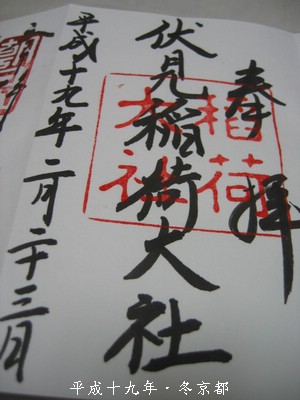 奉拝
伏見稲荷大社
稲荷
大社
平成十九年二月二十三日
平成十九年・冬京都